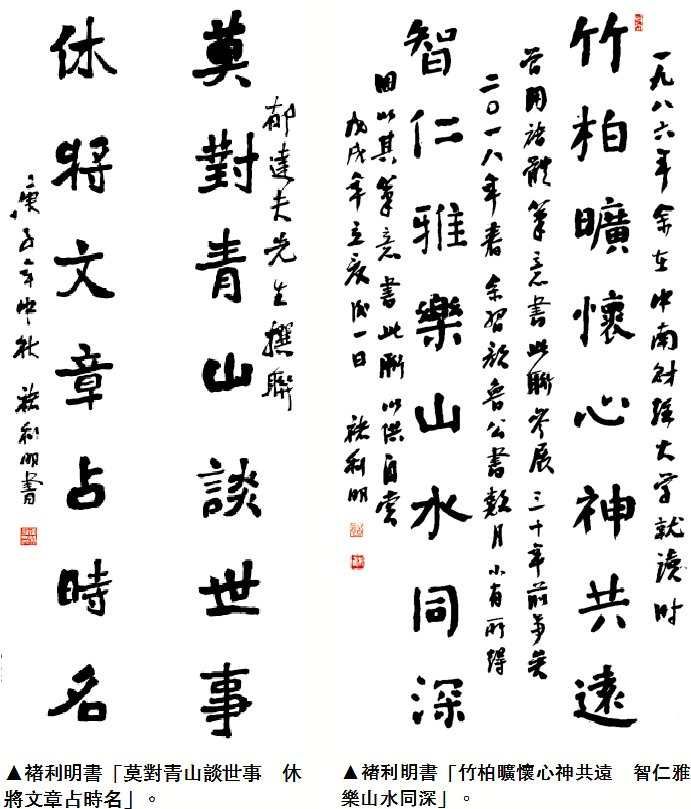 一九八六年余在中南财經大学就讀时
竹柏曠懷心神共遠
曾用 體筆意書此聯參展 三十年前
二〇一八年春余習顏魯公書數月小有所得
智仁雅樂山水同深
因以其筆意書此聯以供自賞
戊戌年立夏後一日 褚利明
郁達夫先生撰聯
莫對青山談世事
休將文章占時名
庚子年中秋 褚利明書
▲褚利明書「莫對青山談世事　休
將文章占時名」。
▲褚利明書「竹柏曠懷心神共遠　智仁雅
樂山水同深」。